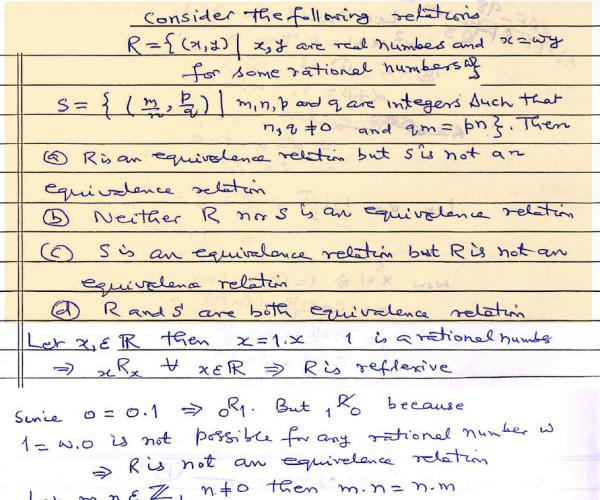 Consider the following relations
R = { (x,y) | x,y are real numbers and x = wy
for some rational numbers w}
S = { (m/n, p/q) | m,n,p and q are integers such that
n,q ≠0 and qm = pn}. Then
(a) R is an equivalence relation but S is not an
equivalence relation
(b) Neither R nor S is an equivalence relation
(c) S is an equivalence relation but R is not an
equivalence relation
(d) R and S are both equivalence relation
Let x, ε ℝ then x = 1.x 1 is a rational number
⇒ xRx ∀ x∈ℝ ⇒ R is reflexive
Since 0 = 0.1 ⇒ 0R1. But 1R̸0 because
1 = w.0 is not possible for any rational number w
⇒ R is not an equivalence relation
Let m, n ε ℤ, n ≠ 0 then m.n = n.m